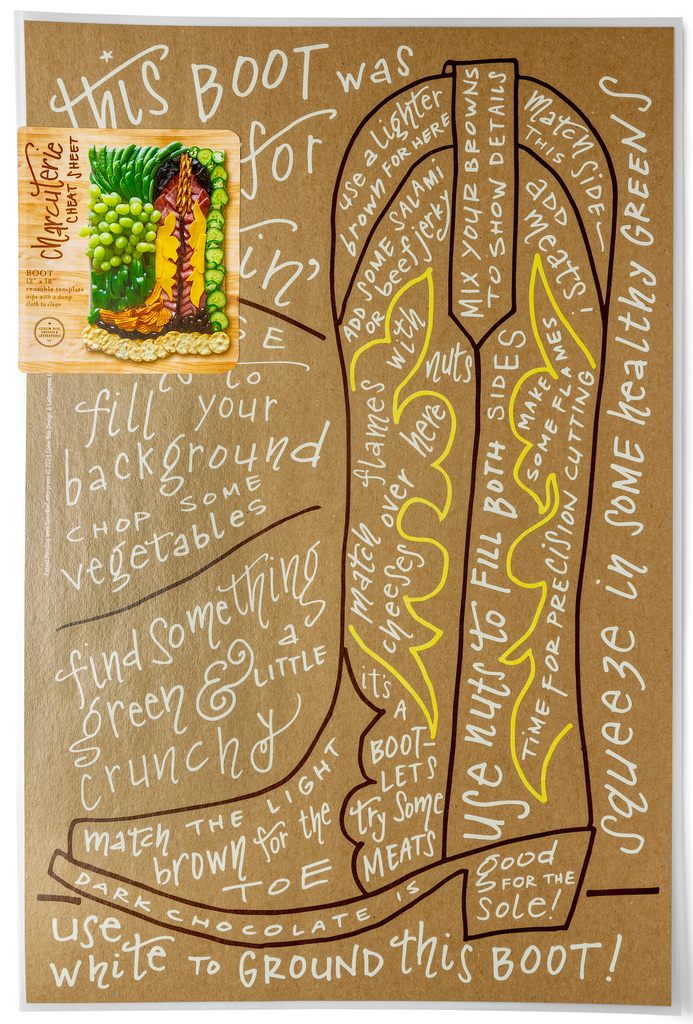 this BOOT was
for
in'
charcuterie
CHEAT SHEET
BOOT
12" x 18"
reusable template
wipe with a damp
cloth to clean
to
fill your
background
CHOP SOME
vegetables
find something
green &
a LITTLE
crunchy
use a lighter
brown FOR HERE
MIX YOUR BROWNS
TO SHOW DETAILS
match side
THIS
ADD SOME SALAMI
OR beef jerky
ADD
meats!
match flames with
cheeses over here
nuts
use nuts to FILL BOTH SIDES
MAKE
SOME FLAMES
TIME FOR PRECISION CUTTING
squeeze in SOME healthy GREENS
it's
A
BOOT-
LETS
try some
MEATS
match THE LIGHT
brown for the
TOE
DARK CHOCOLATE IS
good
FOR THE
sole!
use
white TO GROUND this BOOT!